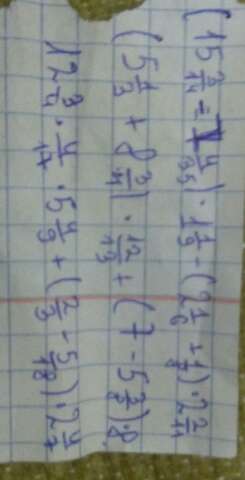 (15 3/14 = 1 4/35) · 1 1/9 - (2 1/6 + 1/8) · 2 2/11
(5 1/3 + 8 3/4) · 12/13 + (7 - 5 3/8) · 8
12 3/4 · 4/17 · 5 4/9 + (2/3 - 5/18) · 2 4/7